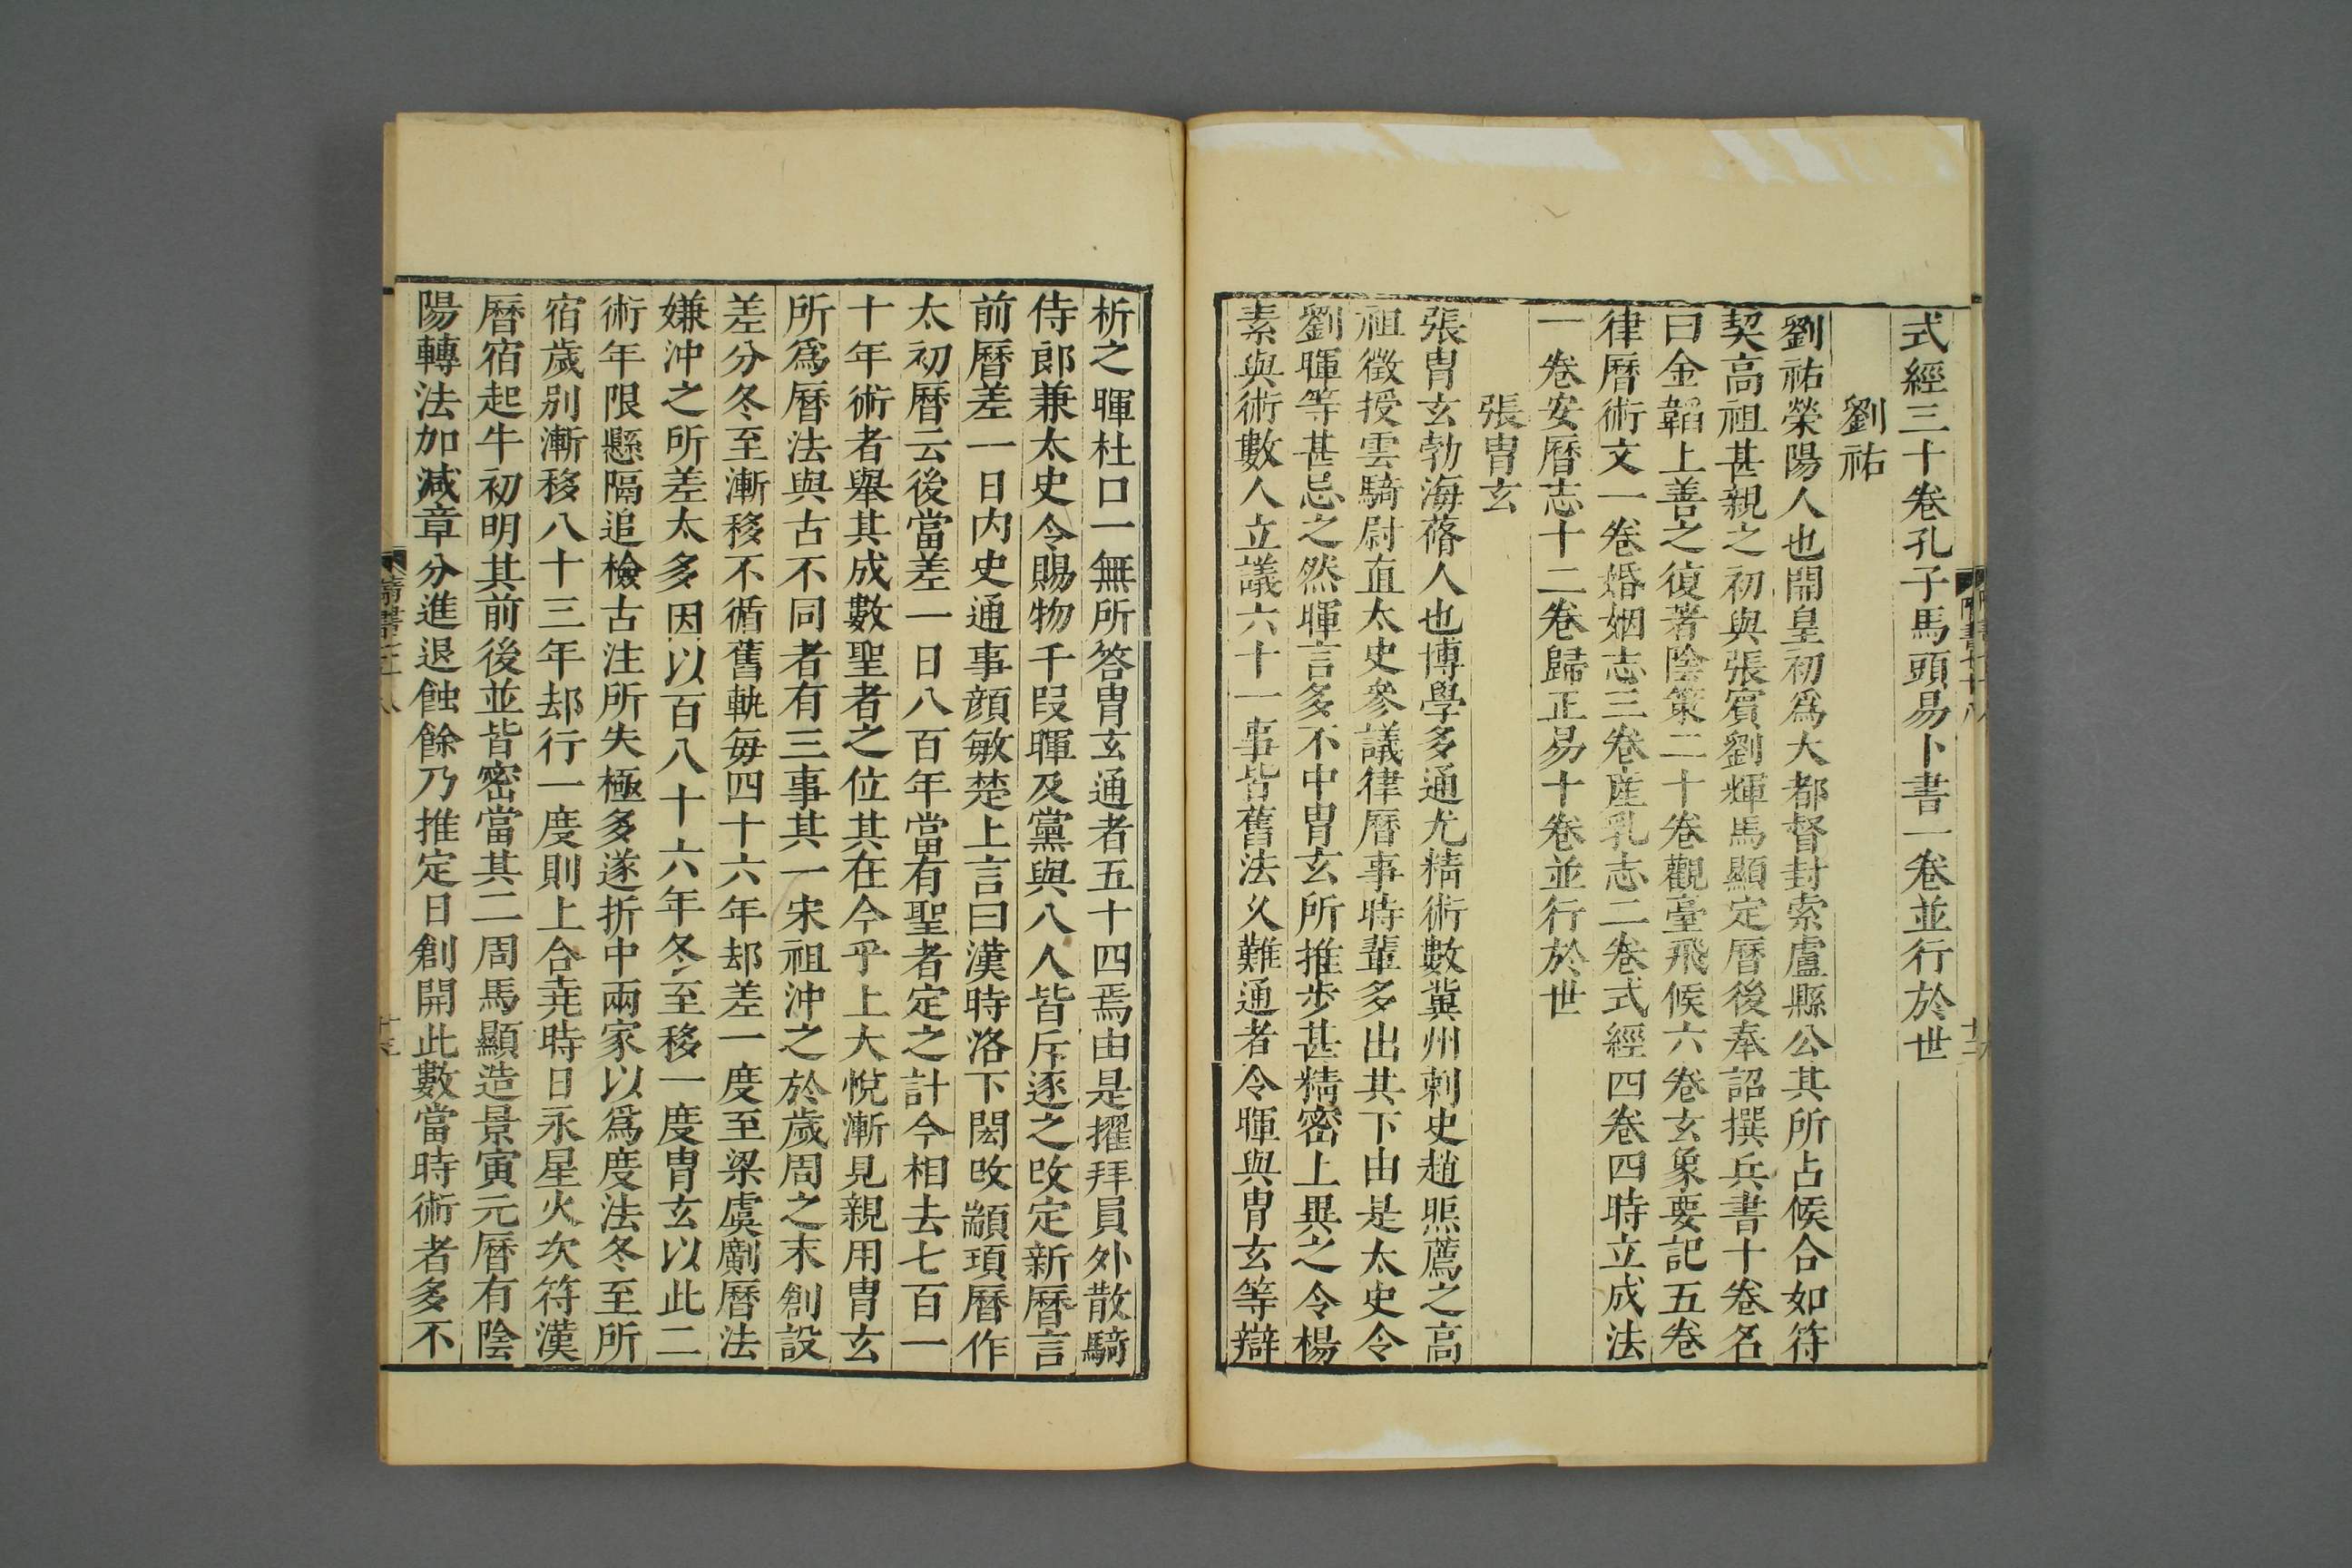 式經三十卷孔子馬頭易卜書一卷並行於世
劉祐
劉祐滎陽人也開皇初爲大都督封索盧縣公其所占候合如符
契高祖甚親之初與張賓劉輝馬顯定曆後奉詔撰兵書十卷名
曰金韜上善之復著陰策二十卷觀臺飛候六卷玄象要記五卷
律曆術文一卷婚姻志三卷產乳志二卷式經四卷四時立成法
一卷安曆志十二卷歸正易十卷並行於世
張胄玄
張胄玄勃海蓨人也博學多通尤精術數冀州刺史趙煚薦之高
祖徵授雲騎尉直太史參議律曆事時輩多出其下由是太史令
劉暉等甚忌之然暉言多不中胄玄所推步甚精密上異之令楊
素與術數人立議六十一事皆舊法久難通者令暉與胄玄等辯
析之暉杜口一無所答胄玄通者五十四焉由是擢拜員外散騎
侍郎兼太史令賜物千段暉及黨與八人皆斥逐之改定新曆言
前曆差一日內史通事顏敏楚上言曰漢時洛下閎改顓頊曆作
太初曆云後當差一日八百年當有聖者定之計今相去七百一
十年術者舉其成數聖者之位其在今乎上大悅漸見親用胄玄
所爲曆法與古不同者有三事其一宋祖沖之於歲周之末創設
差分冬至漸移不循舊軌每四十六年却差一度至梁虞劆曆法
嫌沖之所差太多因以百八十六年冬至移一度胄玄以此二
術年限懸隔追檢古注所失極多遂折中兩家以爲度法冬至所
宿歲別漸移八十三年却行一度則上合堯時日永星火次符漢
曆宿起牛初明其前後並皆密當其二周馬顯造景寅元曆有陰
陽轉法加減章分進退蝕餘乃推定日創開此數當時術者多不